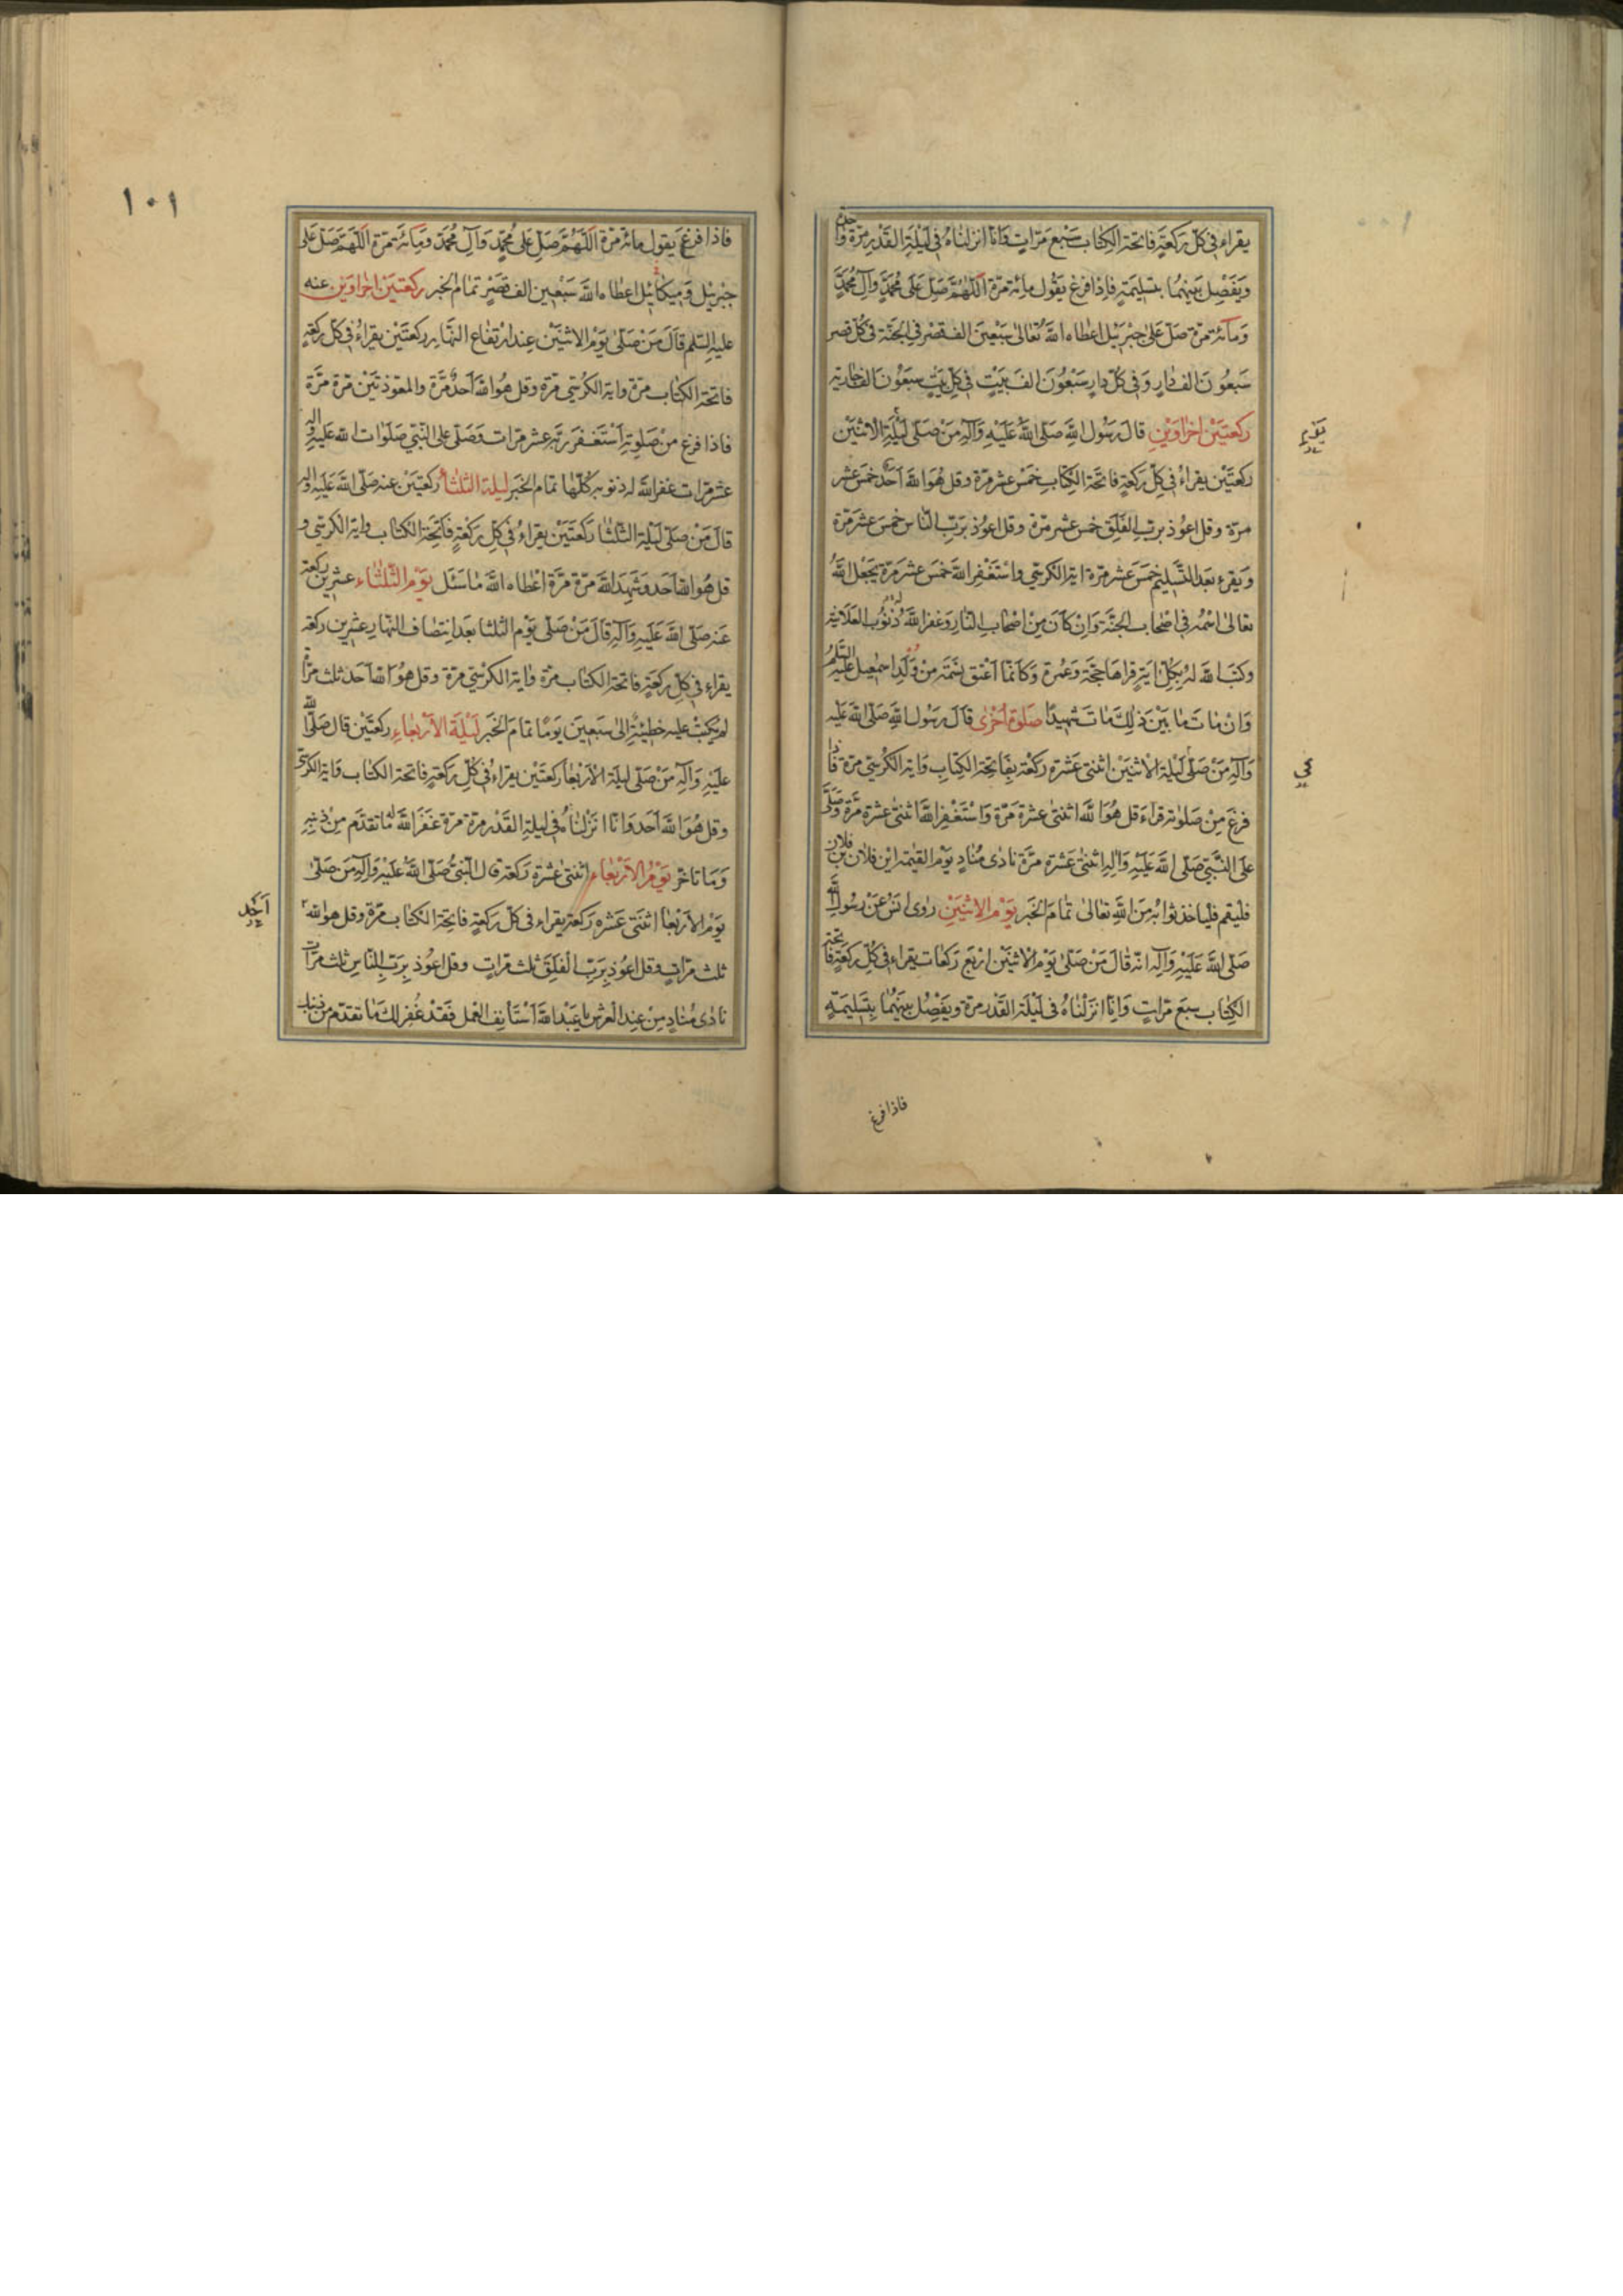 يقراء في كل ركعة فاتحة الكتاب سبع مرات وانا انزلناه في ليلة القدر مرة واحدة
ويفصل بينهما بتسليمة فاذا فرغ يقول مائة مرة اللهم صل على محمد وآل محمد
ومائة مرة صل على جبريل اعطاه الله تعالى سبعين الف قصر في الجنة في كل قصر
سبعون الف دار وفي كل دار سبعون الف بيت في كل بيت سبعون الف جارية
ركعتين اخراوين قال رسول الله صلى الله عليه وآله من صلى ليلة الاثنين
ركعتين يقراء في كل ركعة فاتحة الكتاب خمس عشر مرة وقل هو الله احد خمس عشر
مرة وقل اعوذ برب الفلق خمس عشر مرة وقل اعوذ برب الناس خمس عشر مرة
ويقرء بعد التسليم خمس عشر مرة اية الكرسي واستغفر الله خمس عشر مرة يجعل الله
تعالى اسمه في اصحاب الجنة وان كان من اصحاب النار وغفر الله له ذنوب العلانية
وكتب الله له بكل اية قراها حجة وعمرة وكانما اعتق نسمة من ولد اسمعيل عليه السلم
وان مات ما بين ذلك مات شهيدا صلوة اخرى قال رسول الله صلى الله عليه
وآله من صلى ليلة الاثنين اثنتى عشرة ركعة بفاتحة الكتاب واية الكرسي مرة فاذا
فرغ من صلوته قراء قل هو الله اثنتى عشرة مرة واستغفر الله اثنتى عشرة مرة وصلى
على النبي صلى الله عليه وآله اثنتى عشرة مرة نادى مناد يوم القيمة اين فلان بن فلان
فليقم فلياخذ ثوابه من الله تعالى تمام الخبر يوم الاثنين روى انس عن رسول الله
صلى الله عليه وآله انه قال من صلى يوم الاثنين اربع ركعات يقراء في كل ركعة فاتحة
الكتاب سبع مرات وانا انزلناه في ليلة القدر مرة ويفصل بينهما بتسليمة
فاذا فرغ
١٠١
فاذا فرغ يقول مائة مرة اللهم صل على محمد وآل محمد ومائة مرة اللهم صل على
جبريل وميكائيل اعطاه الله سبعين الف قصر تمام الخبر ركعتين اخراوين عنه
عليه السلم قال من صلى يوم الاثنين عند ارتفاع النهار ركعتين يقراء في كل ركعة
فاتحة الكتاب مرة واية الكرسي مرة وقل هو الله احد مرة والمعوذتين مرة مرة
فاذا فرغ من صلوته استغفر ربه عشر مرات وصلى على النبي صلوات الله عليه وآله
عشر مرات غفر الله له ذنوبه كلها تمام الخبر ليلة الثلثا ركعتين عنه صلى الله عليه وآله
قال من صلى ليلة الثلثا ركعتين يقراء في كل ركعة فاتحة الكتاب واية الكرسي و
قل هو الله احد وشهد الله مرة مرة اعطاه الله ما سئل يوم الثلثاء عشرين ركعة
عنه صلى الله عليه وآله قال من صلى يوم الثلثا بعد انتصاف النهار عشرين ركعة
يقراء في كل ركعة فاتحة الكتاب مرة واية الكرسي مرة وقل هو الله احد ثلث مرات
لم يكتب عليه خطيئة الى سبعين يوما تمام الخبر ليلة الاربعاء ركعتين قال صلى الله
عليه وآله من صلى ليلة الاربعا ركعتين يقراء في كل ركعة فاتحة الكتاب واية الكرسي
وقل هو الله احد وانا انزلناه في ليلة القدر مرة مرة غفر الله له ما تقدم من ذنبه
وما تاخر يوم الاربعاء اثنتى عشرة ركعة قال النبي صلى الله عليه وآله من صلى
يوم الاربعا اثنتى عشرة ركعة يقراء في كل ركعة فاتحة الكتاب مرة وقل هو الله
ثلث مرات وقل اعوذ برب الفلق ثلث مرات وقل اعوذ برب الناس ثلث مرات
نادى مناد من عند العرش يا عبد الله استانف العمل فقد غفر لك ما تقدم من ذنبك